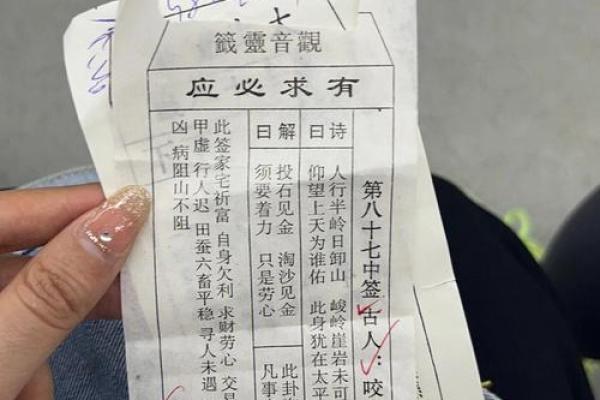 觀音靈籤
有求必应
第八十七中签 古人：咬
诗曰
人行半岭日卸山 峻岭崖岩未可
仰望上天为谁佑 此身犹在太平
解曰
投石见金 淘沙见金 此卦
须要着力 只是劳心 凡事
此签家宅祈富 自身欠利 求财劳心 交易
甲虚 行人迟 田蚕六畜平稳 寻人未遇
凶 病阻山不阻